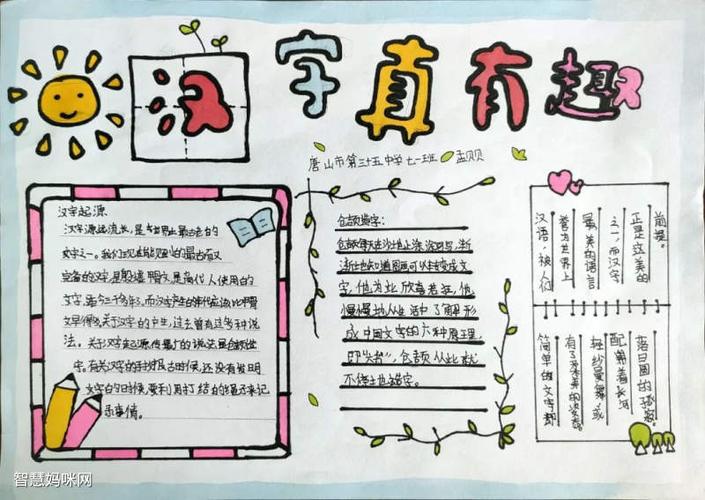 汉字真有趣
唐山市第三十五中学七一班 孟贝贝
汉字起源
汉字源起流长,是世界上最古老的
文字之一。我们现在能见到的最古而又
完备的汉字,是殷墟甲骨文,是商代人使用的
文字,距今三千多年。而汉字产生的年代应该比甲骨
文早得多。关于汉字的产生,过去曾有过多种说
法。关于汉字起源,传最广的说法是仓颉造
字。有关汉字的
文字的时候,要利用打结的绳子来记
录事情。
仓颉造字:
仓颉每天在沙地上涂涂写写,渐
渐
字,他为此欣喜若狂,他
慢慢地从生活中了解形
成中国文字的六种原理,
即"六书",仓颉从此就
不停地造字。
前提。
正是立美的
之一,而汉字
最美的语言
誉为世界上
汉语,被人们
落日圆的孤寂。
配漸着长河
轻纱曼舞,或
有了柔美的姿态。
简单的文字都
智慧妈咪网